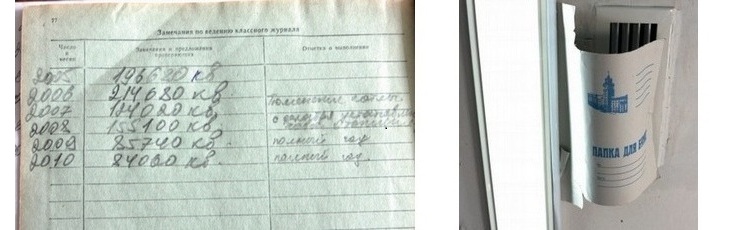 Замечания по ведению классного журнала
Число и месяц
Замечания и предложения проверяющих
Отметка о выполнении
2005 196680 кв
2006 214680 кв
2007 184020 кв
2008 155100 кв
2009 85740 кв полный год
2010 84000 кв полный год
ПАПКА ДЛЯ БУМАГ